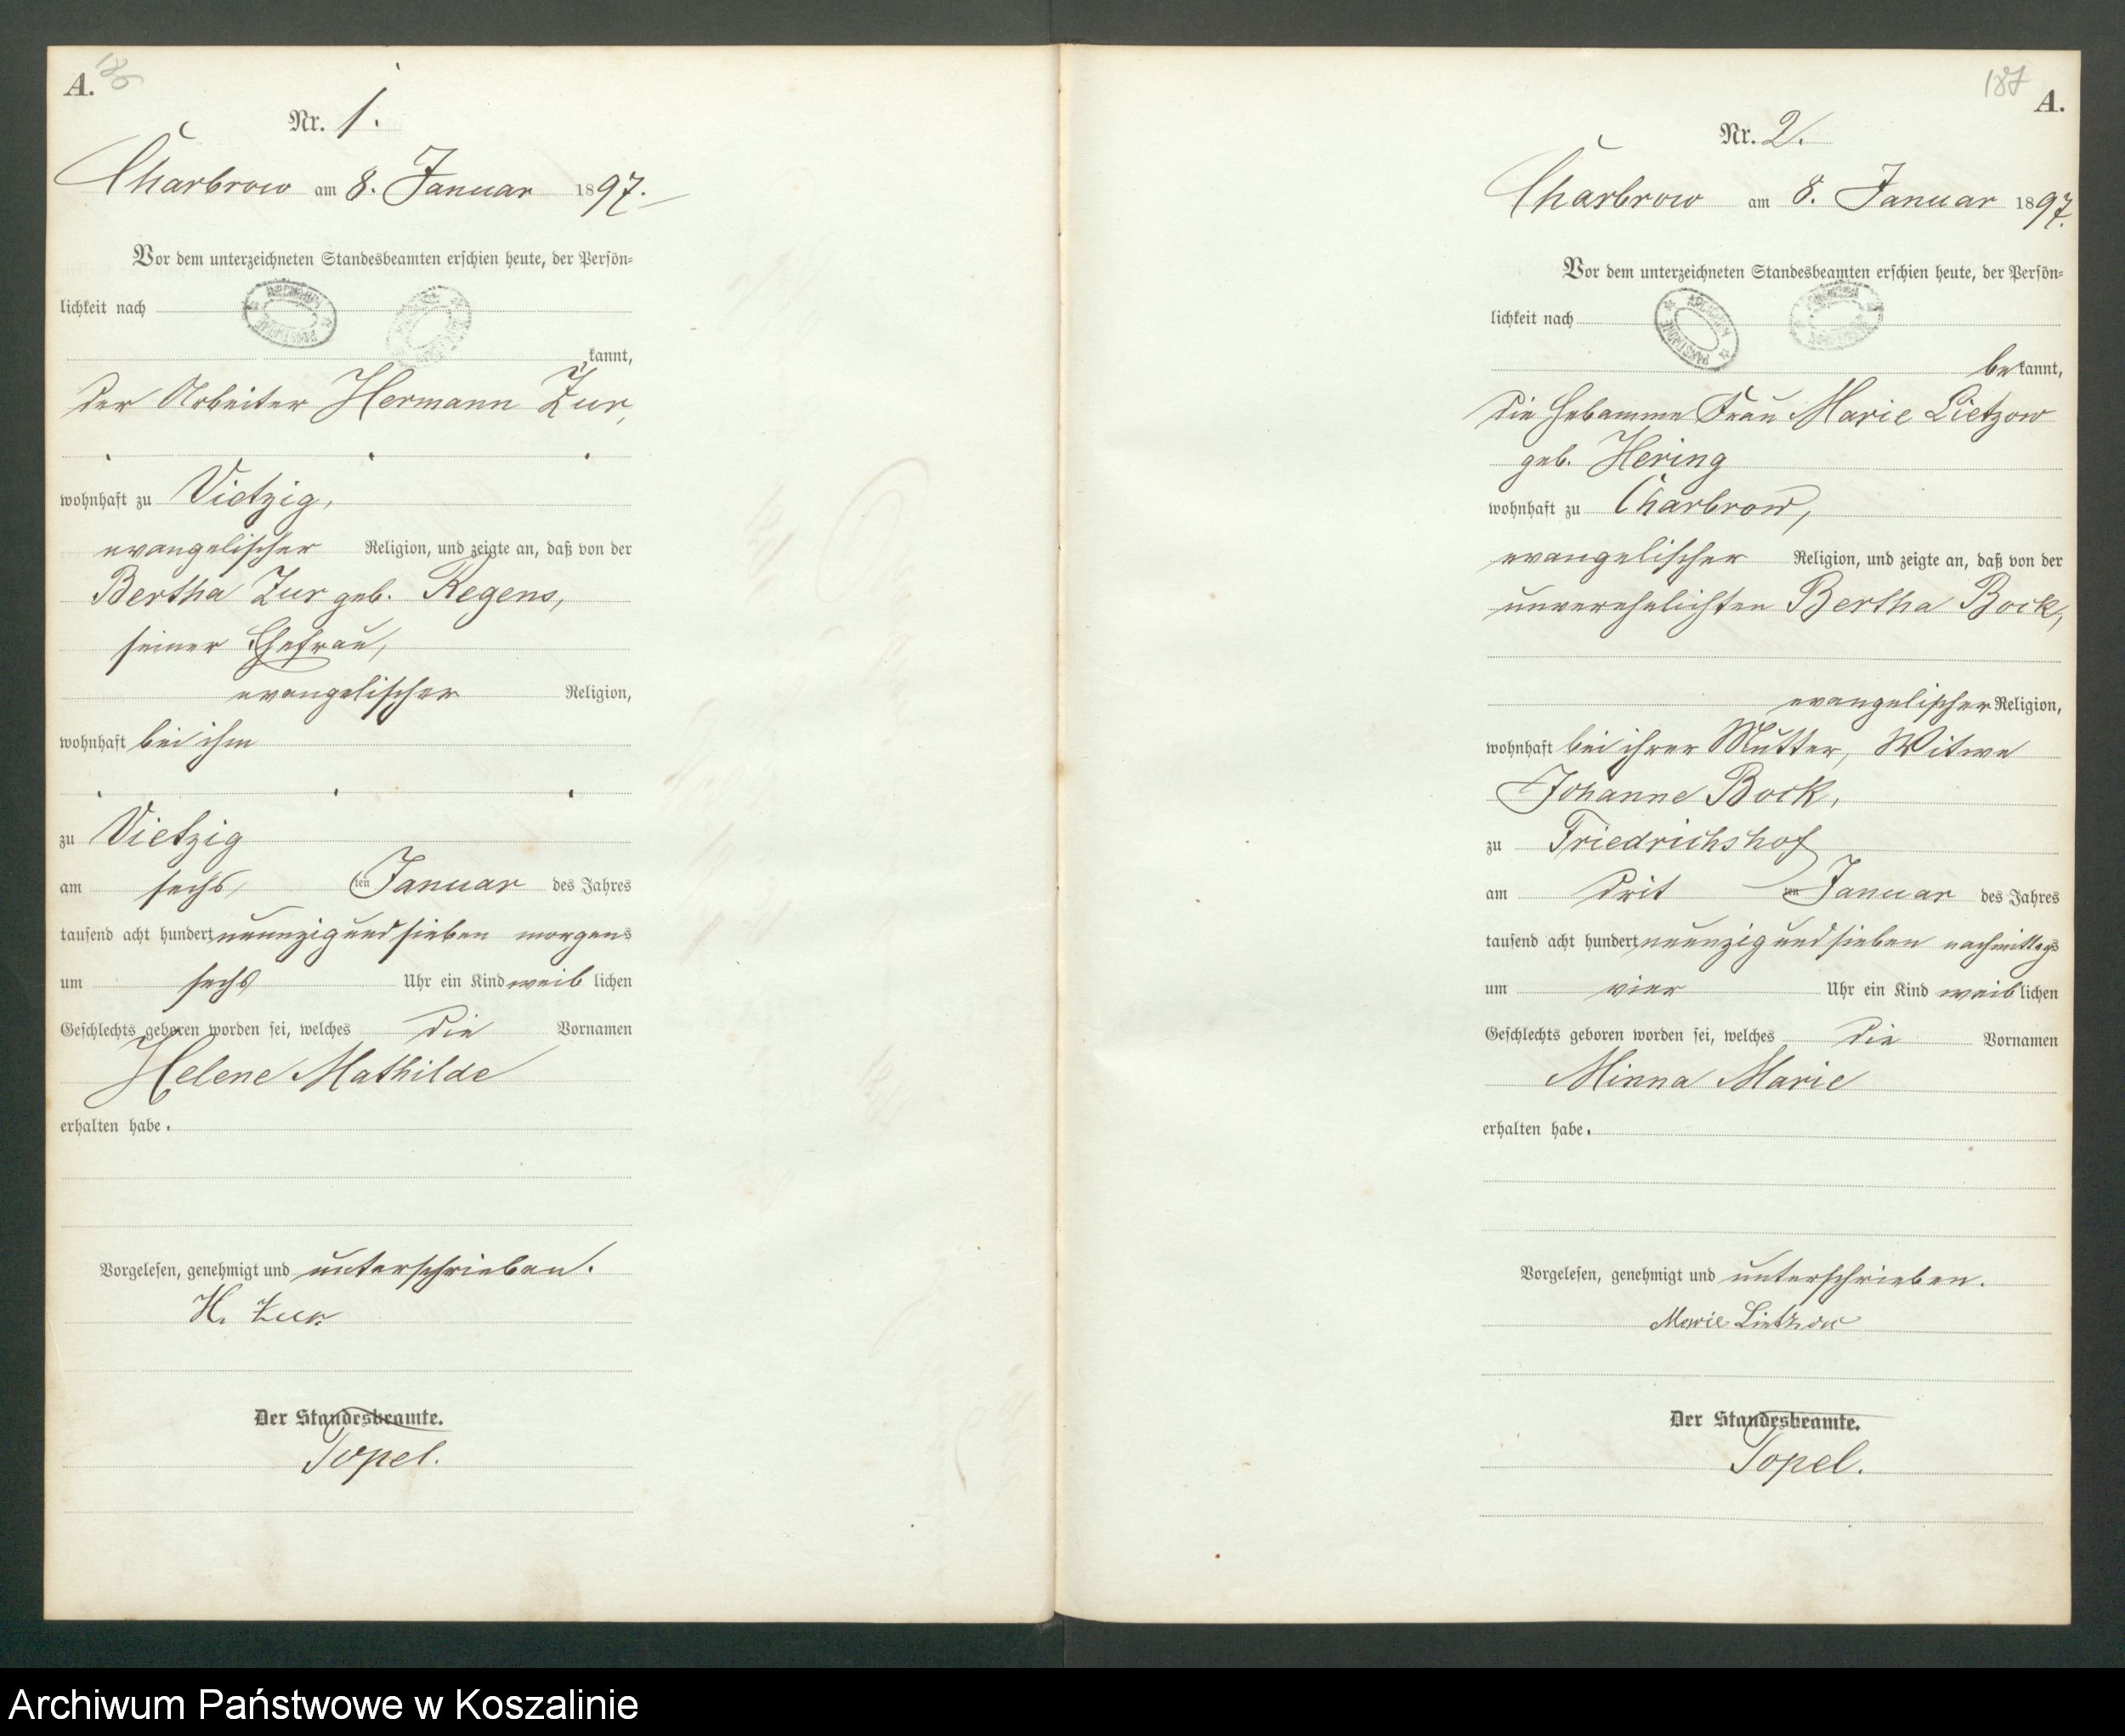 A.
186
Nr. 1.
Charbrow am 8. Januar 1897.
Vor dem unterzeichneten Standesbeamten erschien heute, der Persön-
lichkeit nach
kannt,
der Arbeiter Hermann Zur,
wohnhaft zu Vietzig,
evangelischer Religion, und zeigte an, daß von der
Bertha Zur geb. Regens,
seiner Ehefrau,
evangelischer Religion,
wohnhaft bei ihm
zu Vietzig
am sechs ten Januar des Jahres
tausend acht hundert neunzig und sieben morgens
um sechs Uhr ein Kind weiblichen
Geschlechts geboren worden sei, welches die Vornamen
Helene Mathilde
erhalten habe.
Vorgelesen, genehmigt und unterschrieben.
H. Zur
Der Standesbeamte.
Topel.
187
A.
Nr. 2.
Charbrow am 8. Januar 1897.
Vor dem unterzeichneten Standesbeamten erschien heute, der Persön-
lichkeit nach
bekannt,
die Hebamme Frau Marie Lietzow
geb. Hering
wohnhaft zu Charbrow,
evangelischer Religion, und zeigte an, daß von der
unverehelichten Bertha Bock,
evangelischer Religion,
wohnhaft bei ihrer Mutter, Witwe
Johanne Bock,
zu Friedrichshof
am drit ten Januar des Jahres
tausend acht hundert neunzig und sieben nachmittags
um vier Uhr ein Kind weiblichen
Geschlechts geboren worden sei, welches die Vornamen
Minna Marie
erhalten habe.
Vorgelesen, genehmigt und unterschrieben.
Marie Lietzow
Der Standesbeamte.
Topel.
Archiwum Państwowe w Koszalinie